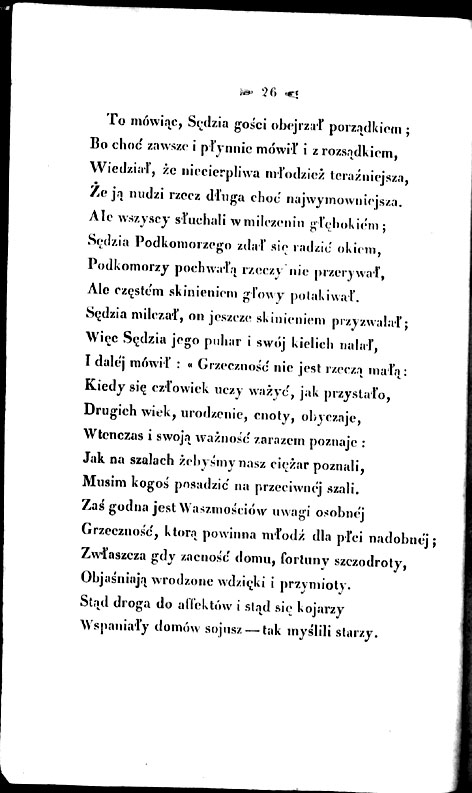 26
To mówiąc, Sędzia gości obejrzał porządkiem ;
Bo choć zawsze i płynnie mówił i z rozsądkiem,
Wiedział, że niecierpliwa młodzież teraźniejsza,
Że ją nudzi rzecz długa choć najwymowniejsza.
Ale wszyscy słuchali w milczeniu głębokiém ;
Sędzia Podkomorzego zdał się radzić okiem,
Podkomorzy pochwałą rzeczy nie przerywał,
Ale częstém skinieniem głowy potakiwał.
Sędzia milczał, on jeszcze skinieniem przyzwalał ;
Więc Sędzia jego puhar i swój kielich nalał,
I daléj mówił : « Grzeczność nie jest rzeczą małą :
Kiedy się człowiek uczy ważyć, jak przystało,
Drugich wiek, urodzenie, cnoty, obyczaje,
Wtenczas i swoją ważność zarazem poznaje :
Jak na szalach żebyśmy nasz ciężar poznali,
Musim kogoś posadzić na przeciwnéj szali.
Zaś godna jest Waszmościów uwagi osobnéj
Grzeczność, którą powinna młodź dla płci nadobnéj ;
Zwłaszcza gdy zacność domu, fortuny szczodroty,
Objaśniają wrodzone wdzięki i przymioty.
Stąd droga do affektów i stąd się kojarzy
Wspaniały domów sojusz — tak myślili starzy.